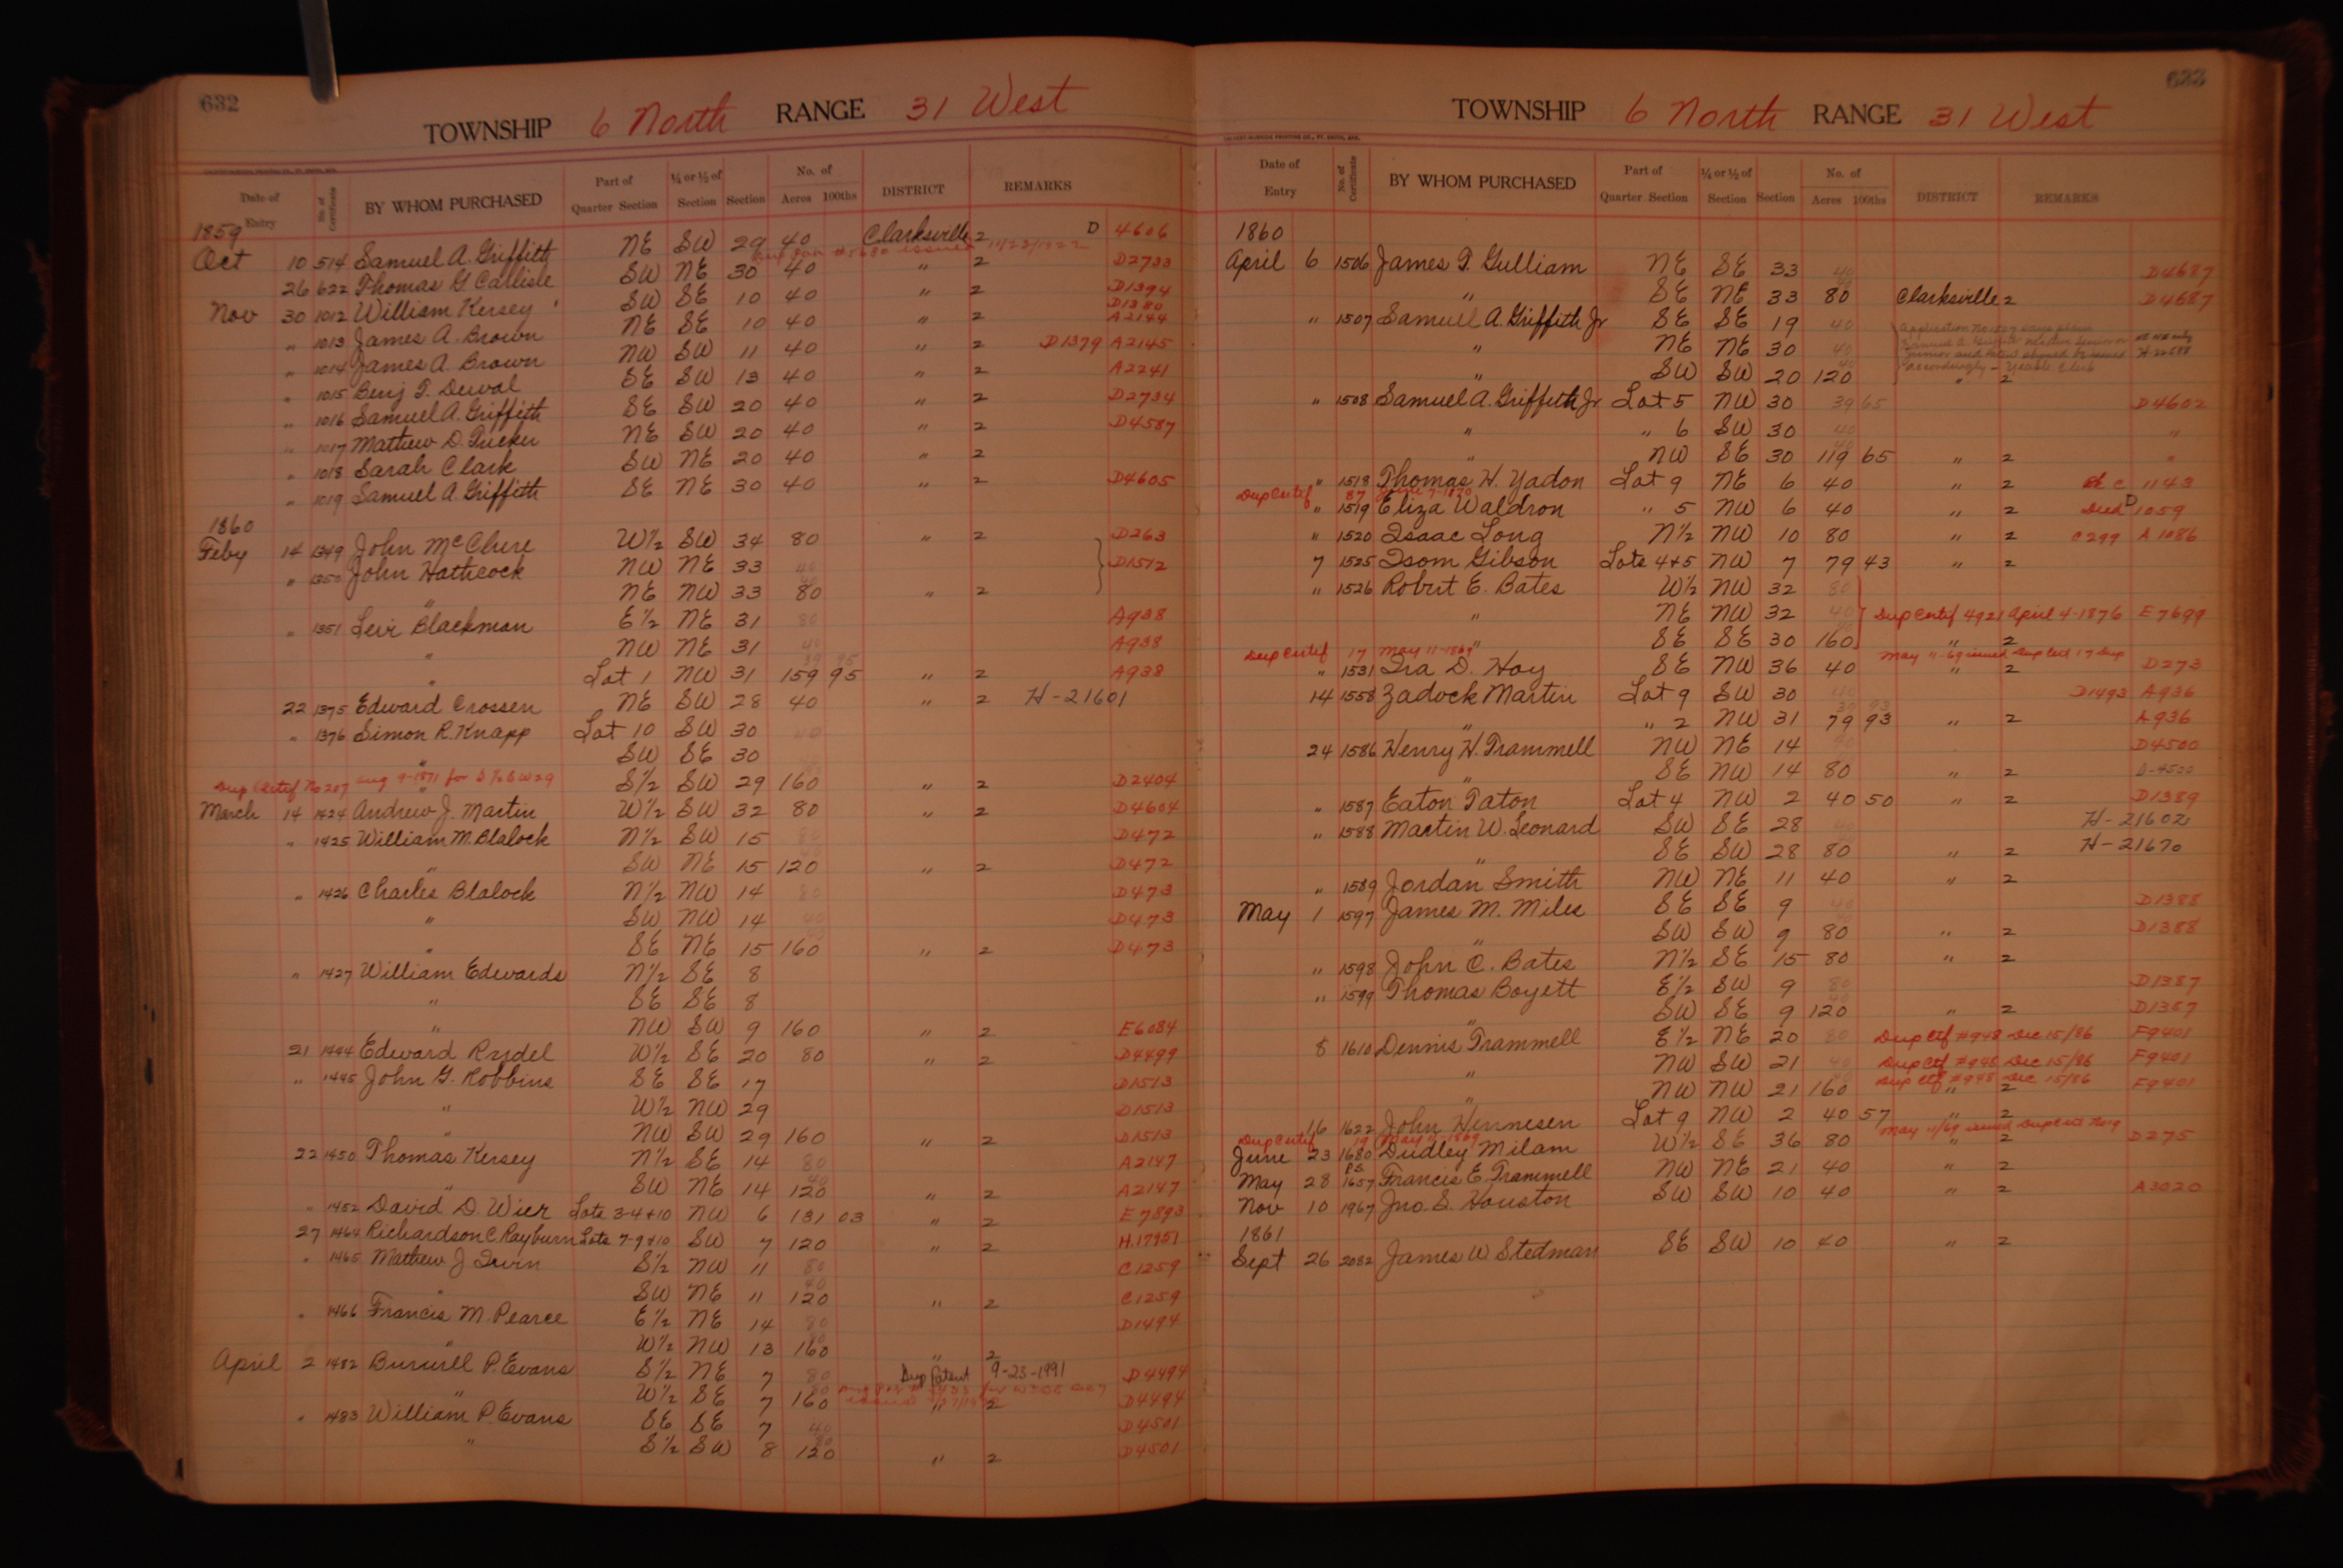 632
TOWNSHIP 6 North RANGE 31 West
Date of Entry No. of Certificate BY WHOM PURCHASED Part of Quarter Section ¼ or ½ of Section Section No. of Acres 100ths DISTRICT REMARKS
1859
Oct 10 514 Samuel A. Griffith NE SW 29 40 Clarksville 2 D 4606
26 622 Thomas G. Carlisle SW NE 30 40 " 2 D2733
Nov 30 1012 William Kersey SW SE 10 40 " 2 D1394
" 1013 James A. Brown NE SE 10 40 " 2 D1380 A2144
" 1014 James A. Brown NW SW 11 40 " 2 D1379 A2145
" 1015 Benj T. Duval SE SW 13 40 " 2 A2241
" 1016 Samuel A. Griffith SE SW 20 40 " 2 D2734
" 1017 Mathew D. Tucker NE SW 20 40 " 2 D4587
" 1018 Sarah Clark SW NE 20 40 " 2
" 1019 Samuel A. Griffith SE NE 30 40 " 2 D4605
1860
Feby 14 1349 John McClure W½ SW 34 80 " 2 D263
" 1350 John Hathcock NW NE 33 40 D1512
" NE NW 33 80 " 2
" 1351 Levi Blackman E½ NE 31 80 A938
" NW NE 31 40 A938
" Lot 1 NW 31 159 95 " 2 A938
22 1375 Edward Crossen NE SW 28 40 " 2 H-21601
" 1376 Simon R. Knapp Lot 10 SW 30 40
" SW SE 30
Dup Certif No 207 Aug 9-1871 for S½ SW 29 " S½ SW 29 160 " 2 D2404
March 14 1424 Andrew J. Martin W½ SW 32 80 " 2 D4604
" 1425 William M. Blalock N½ SW 15 80 D472
" SW NE 15 120 " 2 D472
" 1426 Charles Blalock N½ NW 14 80 D473
" SW NW 14 40 D473
" SE NE 15 160 " 2 D473
" 1427 William Edwards N½ SE 8
" SE SE 8
" NW SW 9 160 " 2 E6084
21 1444 Edward Rydel W½ SE 20 80 " 2 D4499
" 1445 John G. Robbins SE SE 17 D1513
" W½ NW 29 D1513
" NW SW 29 160 " 2 D1513
22 1450 Thomas Kersey N½ SE 14 80 A2147
" SW NE 14 120 " 2 A2147
" 1452 David D. Wier Lots 3-4+10 NW 6 131 03 " 2 E7893
27 1464 Richardson C. Rayburn Lots 7-9+10 SW 7 120 " 2 H.17951
" 1465 Mathew J Irvin S½ NW 11 80 C1259
" SW NE 11 120 " 2 C1259
" 1466 Francis M. Pearce E½ NE 14 80 D1494
" W½ NW 13 160 " 2
April 2 1482 Burwell P. Evans S½ NE 7 80 Dup Patent 9-23-1991 D4494
" W½ SE 7 160 " 2 D4494
" 1483 William P. Evans SE SE 7 40 D4501
" S½ SW 8 120 " 2 D4501
633
TOWNSHIP 6 North RANGE 31 West
Date of Entry No. of Certificate BY WHOM PURCHASED Part of Quarter Section ¼ or ½ of Section Section No. of Acres 100ths DISTRICT REMARKS
1860
April 6 1506 James T. Gulliam NE SE 33 40 D4687
" SE NE 33 80 Clarksville 2 D4687
" 1507 Samuel A. Griffith Jr SE SE 19 40 Application No 1507 says plain
" NE NE 30 40 Samuel A. Griffith
" SW SW 20 120 accordingly " 2
" 1508 Samuel A. Griffith Jr Lot 5 NW 30 39 65 D4602
" " 6 SW 30 40 "
" NW SE 30 119 65 " 2 "
" 1518 Thomas H. Yadon Lot 9 NE 6 40 " 2 1143
Dup Certif 87 June 7-1870
" 1519 Eliza Waldron " 5 NW 6 40 " 2 Died D 1059
" 1520 Isaac Long N½ NW 10 80 " 2 C299 A1086
7 1525 Isom Gibson Lots 4+5 NW 7 79 43 " 2
" 1526 Robert E. Bates W½ NW 32 80
" NE NW 32 40 Dup Certif 4921 April 4-1876 E7699
" SE SE 30 160 " 2
Dup Certif 17 May 11-1869 May 11-69 issued Dup Cert 17 Dup
" 1531 Ira D. Hoy SE NW 36 40 " 2 D273
14 1558 Zadock Martin Lot 9 SW 30 40 D1493 A936
" " 2 NW 31 79 93 " 2 A936
24 1586 Henry H. Trammell NW NE 14 40 D4500
" SE NW 14 80 " 2 D-4500
" 1587 Eaton Taton Lot 4 NW 2 40 50 " 2 D1389
" 1588 Martin W. Leonard SW SE 28 40 H-21602
" SE SW 28 80 " 2 H-21670
" 1589 Jordan Smith NW NE 11 40 " 2
May 1 1597 James M. Miles SE SE 9 40 D1388
" SW SW 9 80 " 2 D1388
" 1598 John C. Bates N½ SE 15 80 " 2
" 1599 Thomas Boyett E½ SW 9 80 D1387
" SW SE 9 120 " 2 D1387
8 1610 Dennis Trammell E½ NE 20 80 Dup Ctf #948 Dec 15/86 F9401
" NW SW 21 40 Dup Ctf #948 Dec 15/86 F9401
" NW NW 21 160 Dup Ctf #948 Dec 15/86 " 2 F9401
16 1622 John Hennesen Lot 9 NW 2 40 57 " 2
Dup Certif 19 May 11-1869 May 11/69 issued Dup Cert No 19
June 23 1680 Dudley Milam W½ SE 36 80 " 2 D275
May 28 1657 Francis E. Trammell NW NE 21 40 " 2
Nov 10 1967 Jno. S. Houston SW SW 10 40 " 2 A3020
1861
Sept 26 2082 James W Stedman SE SW 10 40 " 2